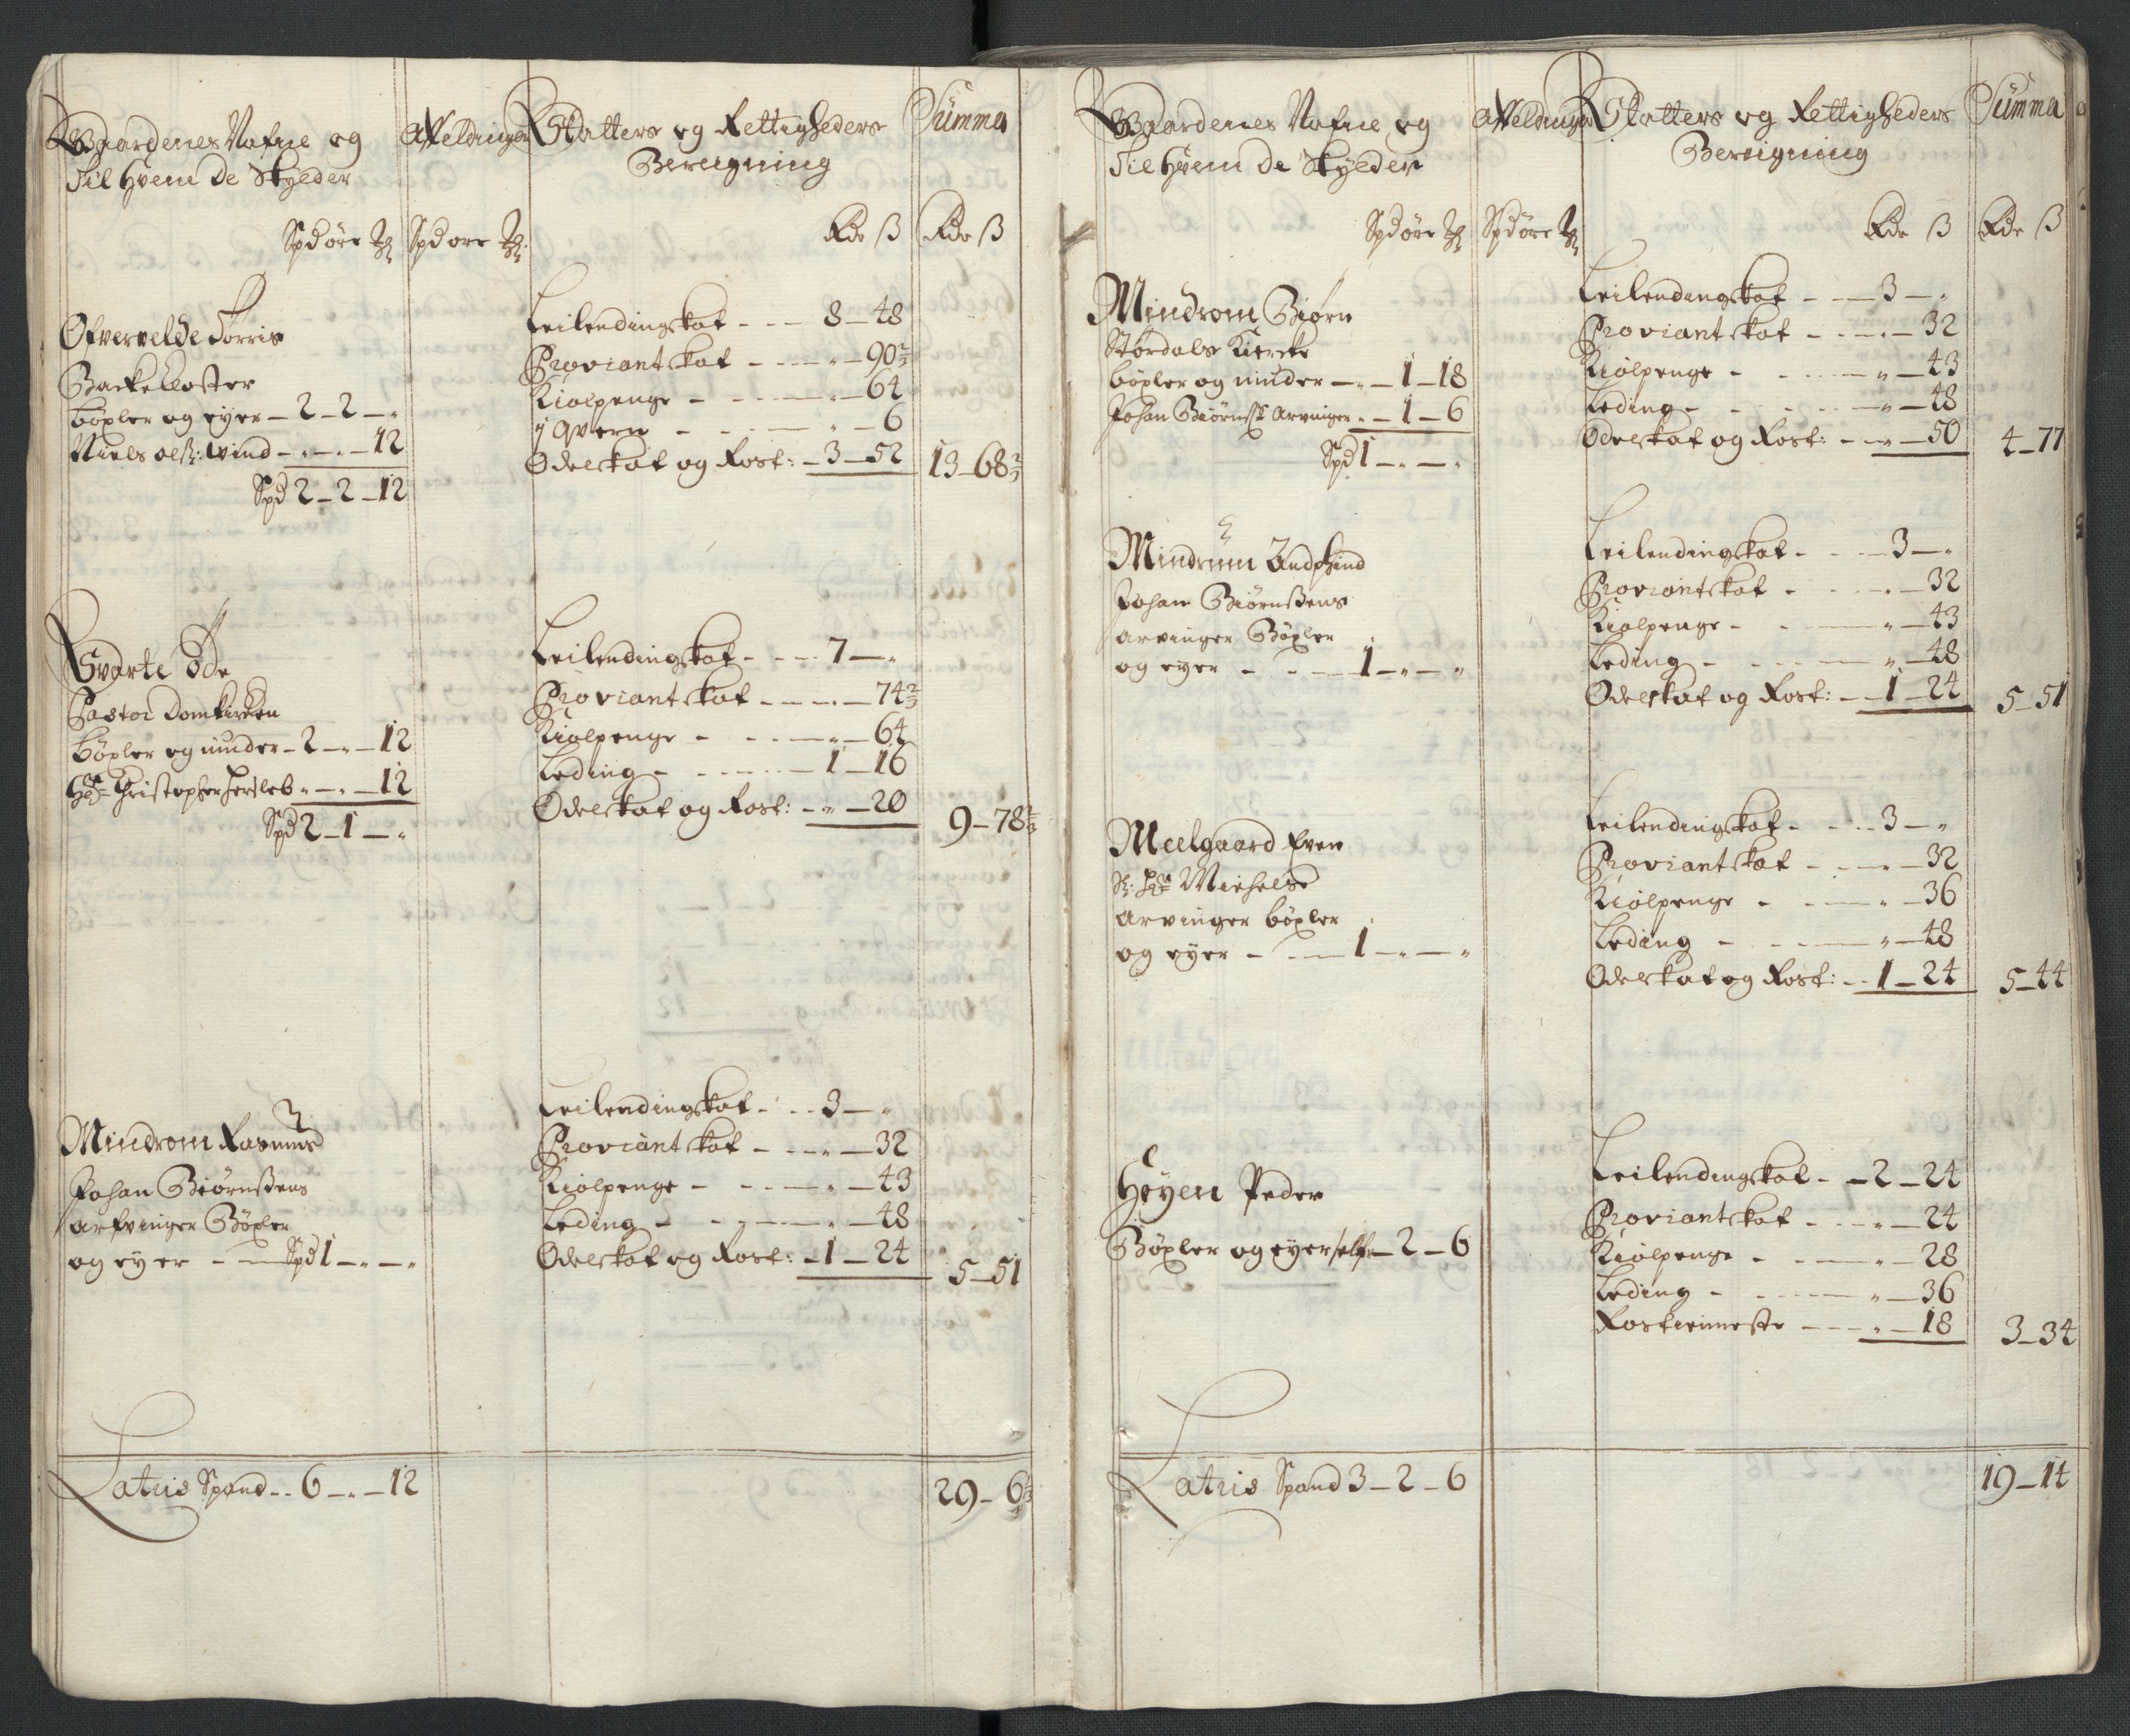 Gaardenes Nafne og
Til Hvem De Skylder
Afkeldinger
Skatters og Rettigheders
Beregning
Summa
Spd øre Spd øre
Rdr ß Rdr ß
Øfvervelde Torris
Backe Closter
böxler og eyer – 2 – 2 – „
Niels olß: wind – „ – „ – 12
Spd 2 – 2 – 12
Leilendingskat - - - 8 – 48
Proviantskat - - - „ – 90⅔
Kiølpenge - - - „ – 64
1 qvern - - - „ – 6
Odelskat og Rost: – 3 – 52
13 – 68⅔
Svarte Ode
Pastor Domkirken
böxler og minder – 2 – „ – 12
Hr Christopher Hersleb „ – „ – 12
Spd 2 – 1 – „
Leilendingskat - - - 7 – „
Proviantskat - - - „ – 74⅔
Kiølpenge - - - „ – 64
Leding - - - 1 – 16
Odelskat og Rost: – „ – 20
9 – 78⅔
Mindrom Rasmus
Johan Biørnßens
arfvinger Böxler
og eyer - - Spd 1 – „ – „
Leilendingskat - - - 3 – „
Proviantskat - - - „ – 32
Kiølpenge - - - „ – 43
Leding - - - „ – 48
Odelskat og Rost: – 1 – 24
5 – 51
Latus Spand - - 6 – „ – 12
29 – 6⅓
Gaardenes Nafne og
Til Hvem De Skylder
Afkeldinger
Skatters og Rettigheders
Beregning
Summa
Spd øre Spd øre
Rdr ß Rdr ß
Mindrom Biørn
Størdals Kiercke
böxler og minder – „ – 1 – 18
Johan Biørnß Arvinger „ – 1 – 6
Spd 1 – „ – „
Leilendingskat - - - 3 – „
Proviantskat - - - „ – 32
Kiølpenge - - - „ – 43
Leding - - - „ – 48
Odelskat og Rost: – „ – 50
4 – 77
Mindrum Andphind
Johan Biørnßens
arvinger Böxler
og eyer - - - 1 – „ – „
Leilendingskat - - - 3 – „
Proviantskat - - - „ – 32
Kiølpenge - - - „ – 43
Leding - - - „ – 48
Odelskat og Rost: – 1 – 24
5 – 51
Meelgaard Even
Sl: Hr Michels
Arvinger böxler
og eyer - - - 1 – „ – „
Leilendingskat - - - 3 – „
Proviantskat - - - „ – 32
Kiølpenge - - - „ – 36
Leding - - - „ – 48
Odelskat og Rost: – 1 – 24
5 – 44
Høyen Peder
Böxler og eyer self – 2 – 6
Leilendingskat - - 2 – 24
Proviantskat - - - „ – 24
Kiølpenge - - - „ – 28
Leding - - - „ – 36
Rostieniste - - - „ – 18
3 – 34
Latus Spand 3 – 2 – 6
19 – 14